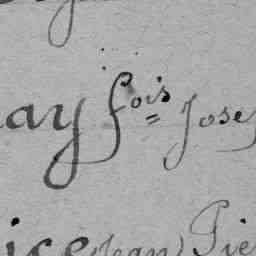 ay fois Jose
ice Jean Pie